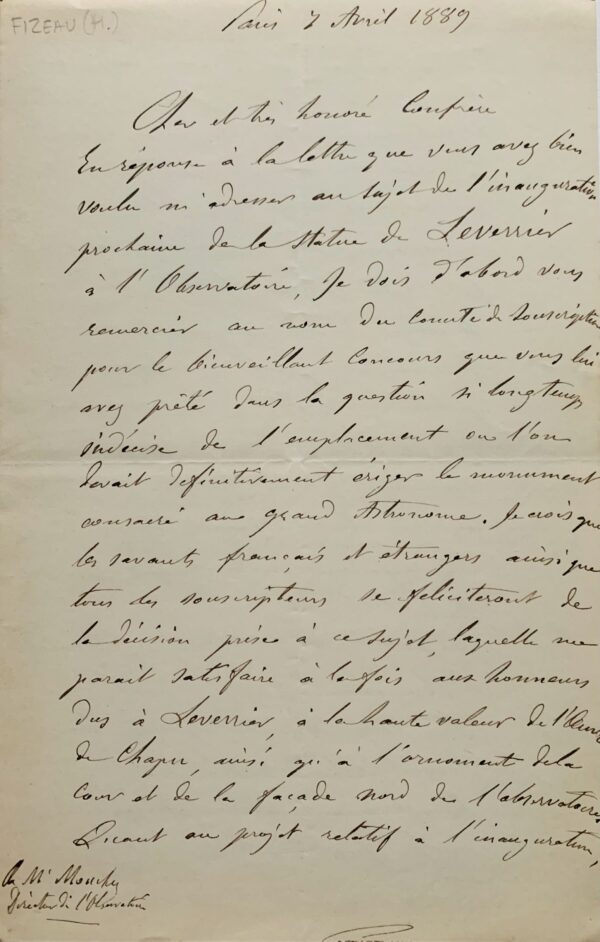 FIZEAU (H.)
Paris 7 Avril 1889
Cher et très honoré Confrère
En réponse à la lettre que vous avez bien
voulu m'adresser au sujet de l'inauguration
prochaine de la statue de Leverrier
à l'Observatoire, Je dois d'abord vous
remercier au nom du Comité de Souscription
pour le bienveillant Concours que vous lui
avez prêté dans la question si longtemps
indécise de l'emplacement ou l'on
devait définitivement ériger le monument
consacré au grand Astronome. Je crois que
les savants français et étrangers ainsi que
tous les souscripteurs se féliciteront de
la décision prise à ce sujet, laquelle me
parait satisfaire à la fois aux honneurs
dus à Leverrier, à la haute valeur de l'Œuvre
de Chapu, ainsi qu'à l'ornement de la
Cour et de la façade nord de l'observatoire.
Quant au projet relatif à l'inauguration,
à Mr Mouchez
Directeur de l'Observatoire